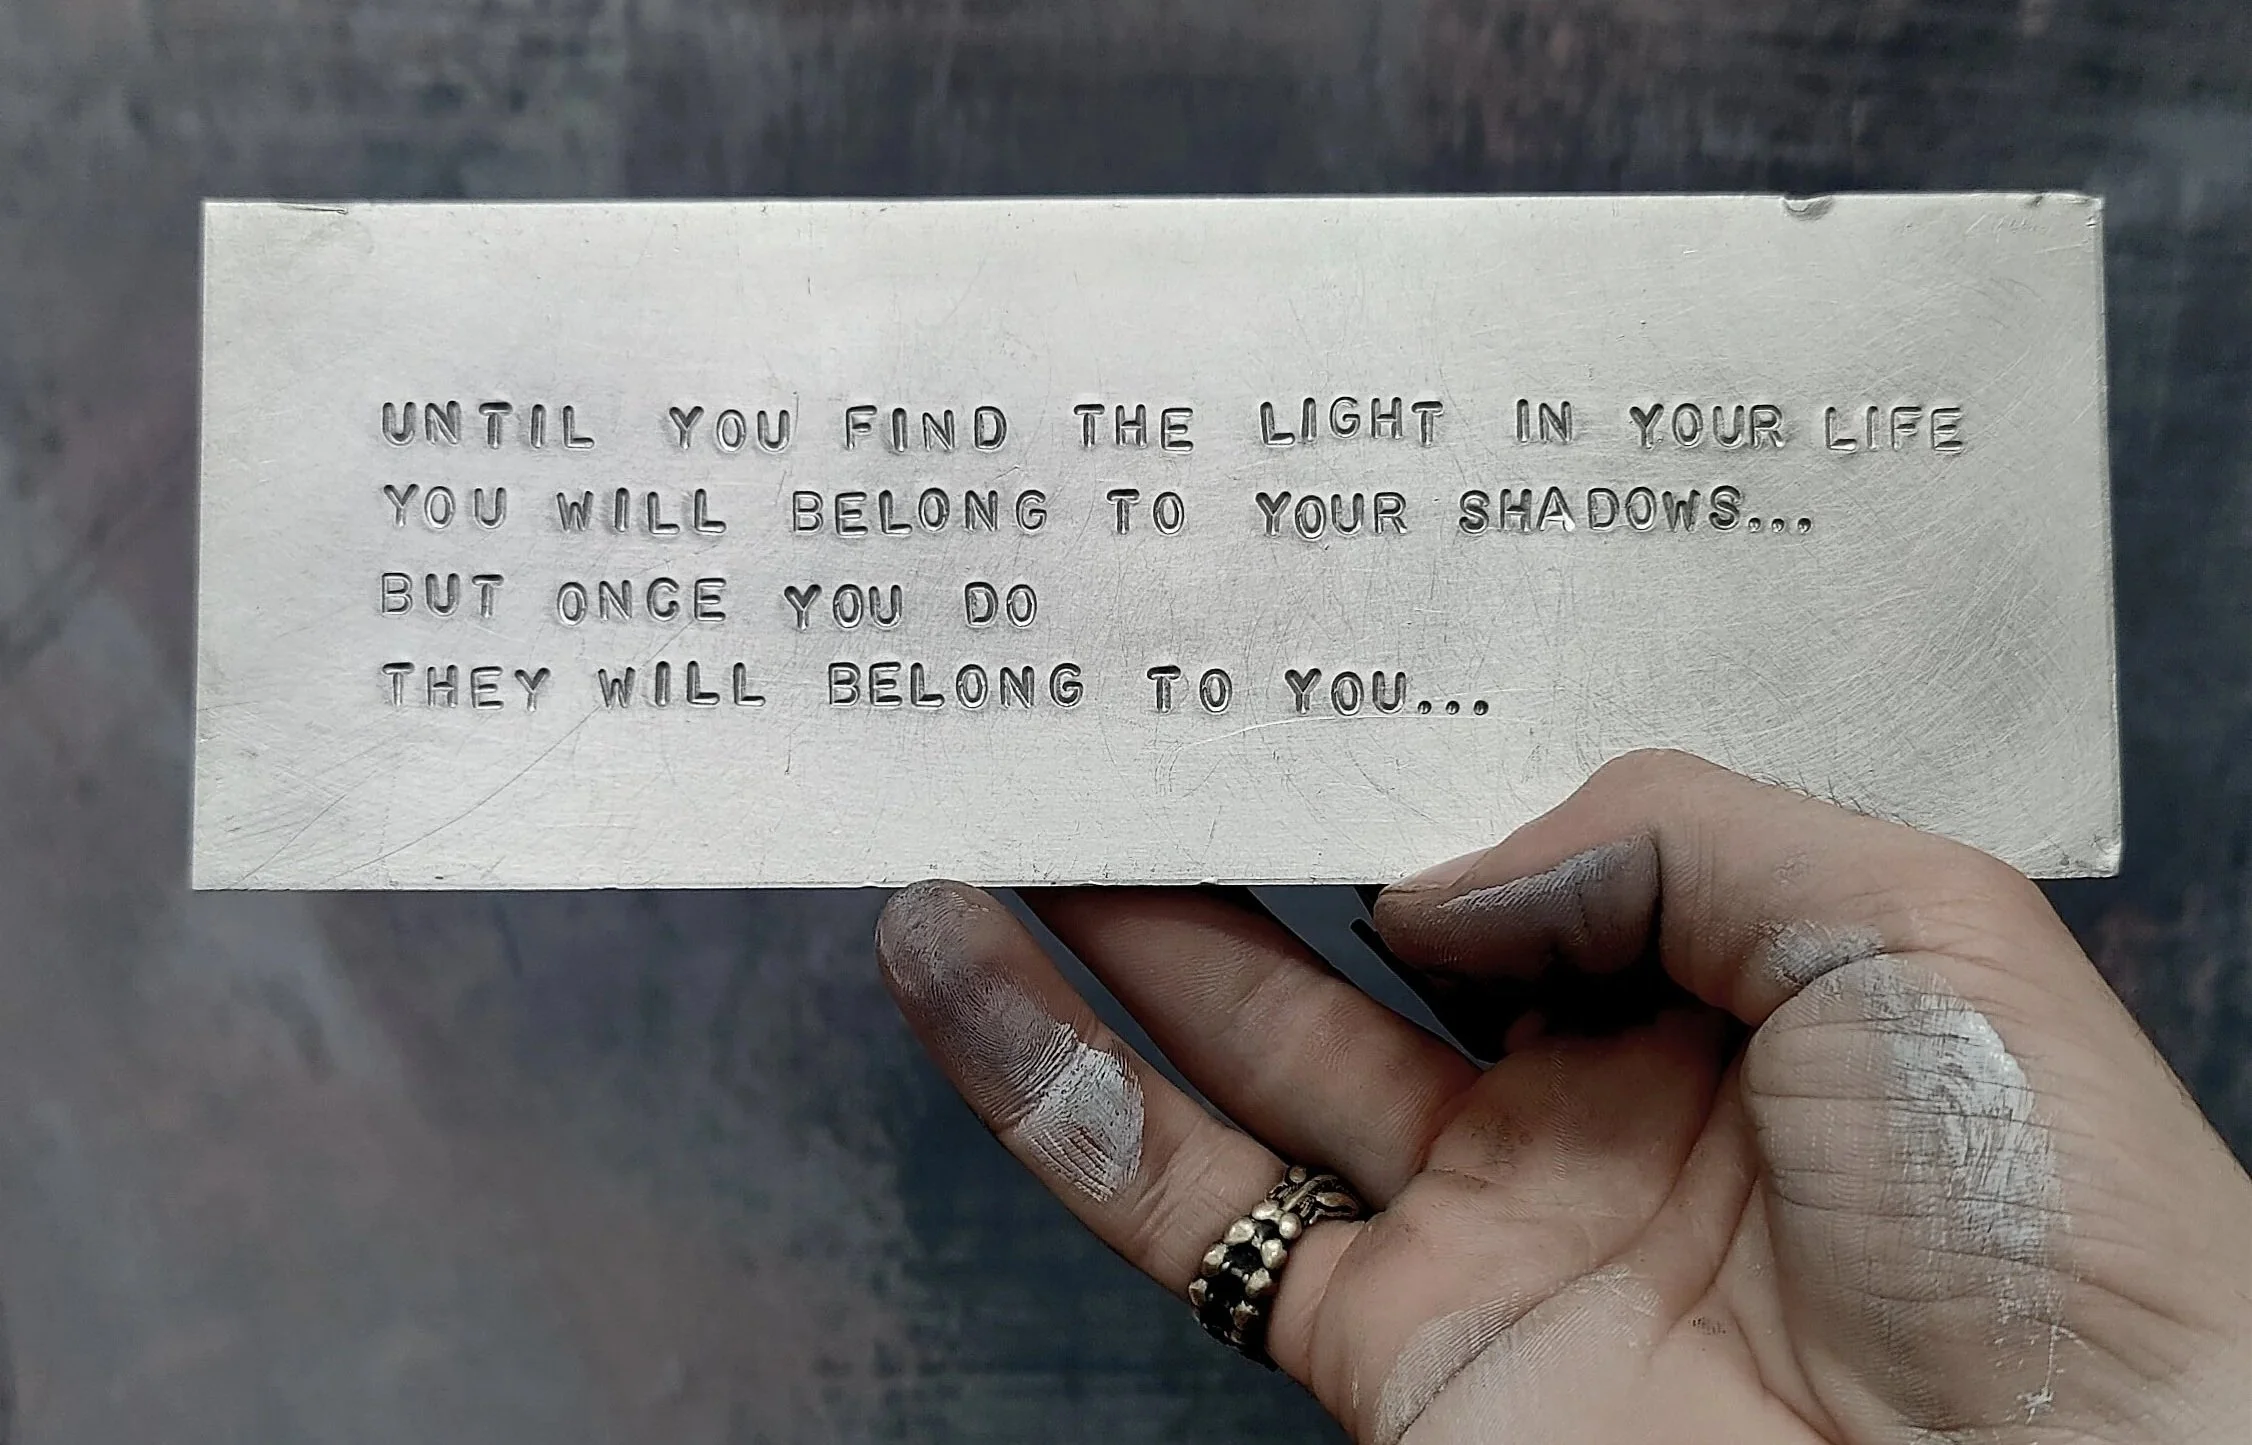 UNTIL YOU FIND THE LIGHT IN YOUR LIFE
YOU WILL BELONG TO YOUR SHADOWS...
BUT ONCE YOU DO
THEY WILL BELONG TO YOU...